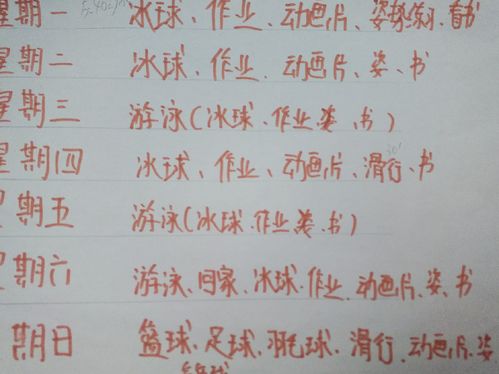 星期一 冰球、作业、动画片、姿势练习、看书
星期二 冰球、作业、动画片、姿、书
星期三 游泳(冰球、作业姿、书)
星期四 冰球、作业、动画片、滑行、书
星期五 游泳(冰球.作业姿.书)
期六 游泳、回家、冰球.作业、动画片、姿、书
期日 篮球、足球、羽毛球、滑行、动画片、姿